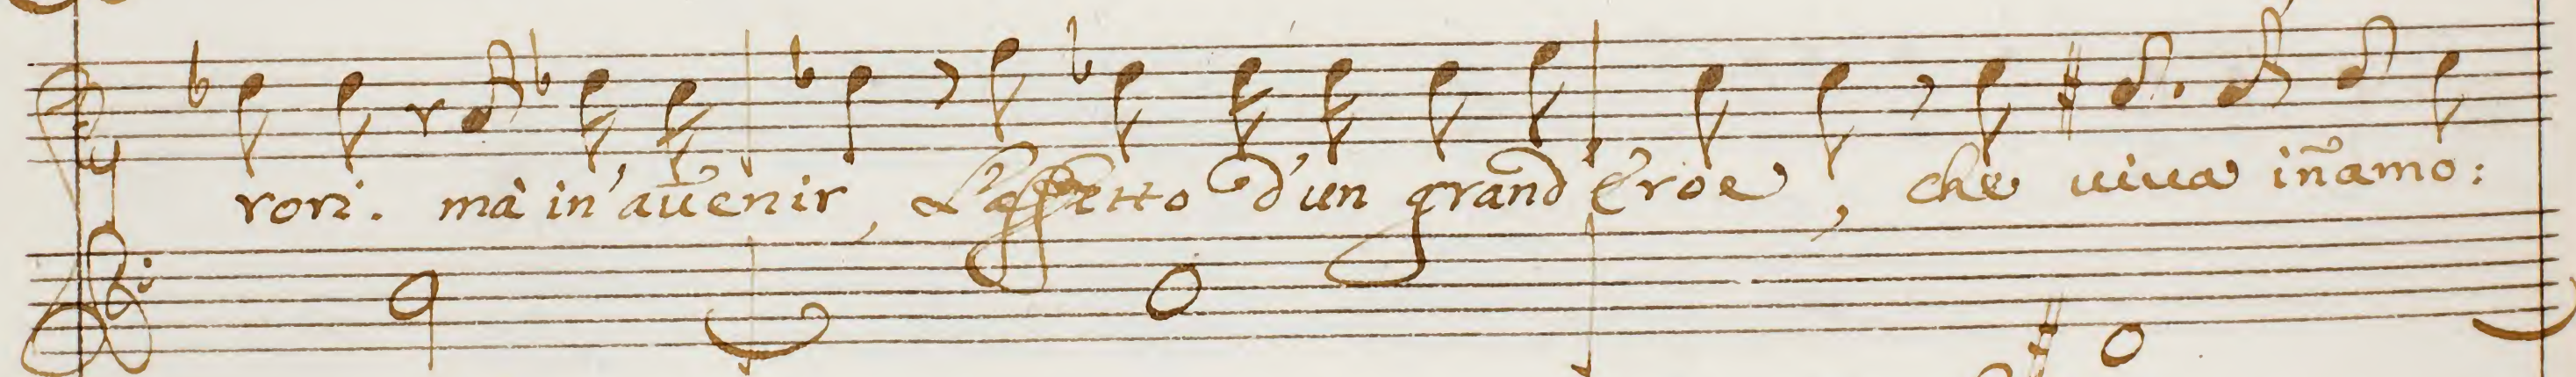 rori. mà in'auenir, L'affetto d'un grand Eroe, che uiua iñamo: